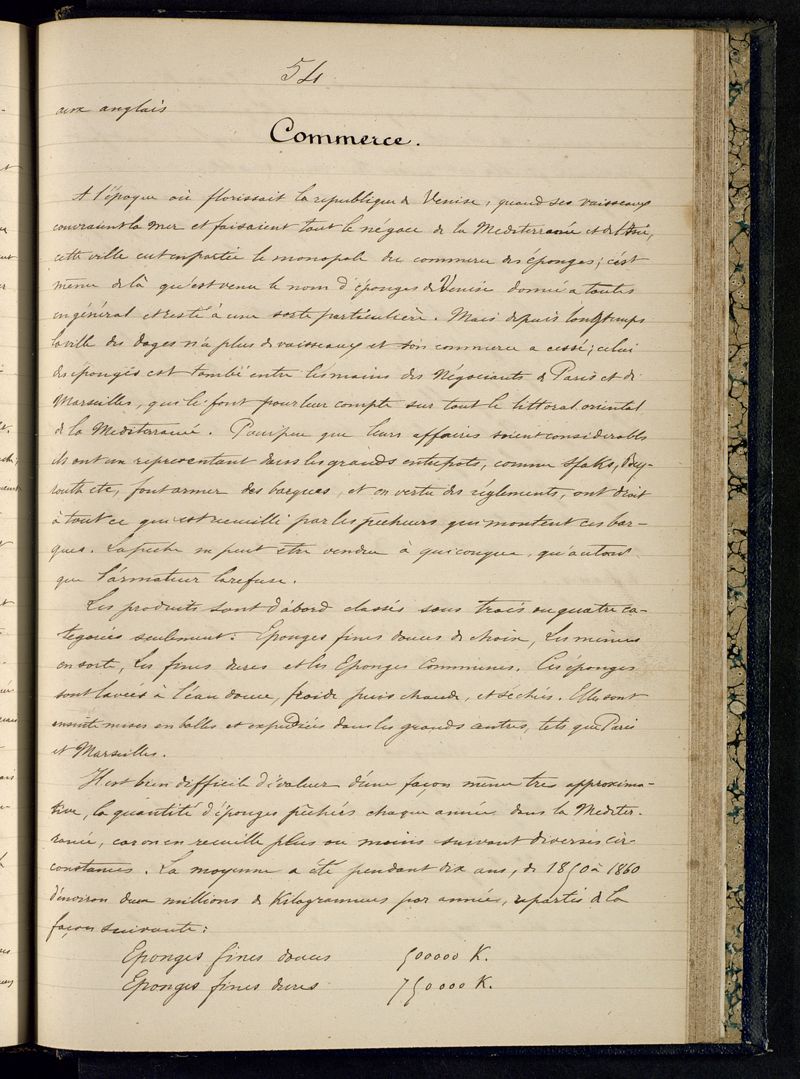 54
aux anglais
Commerce.
A l'époque où florissait la republique de Venise, quand ses vaisseaux
couvraient la mer et faisaient tout le négoce de la Mediterranée et de l'Asie,
cette ville eut en partie le monopole du commerce des éponges; c'est
même de là qu'est venu le nom d'éponges de Venise donné a toutes
en général et resté à une sorte particulière. Mais depuis longtemps
la ville des doges n'a plus de vaisseaux et son commerce a cessé; celui
des éponges est tombé entre les mains des Négociants de Paris et de
Marseilles, qui le font pour leur compte sur tout le littoral oriental
de la Mediterranée. Pour peu que leurs affaires soient considerables
ils ont un representant dans les grands entrepots, comme Sfaks, Bey-
routh etc, font armer des barques, et en vertu des réglements, ont droit
à tout ce qui est recueilli par les pêcheurs qui montent ces bar-
ques. La pêche ne peut être vendue à quiconque, qu'autant
que l'armateur la refuse.
Les produits sont d'abord classés sous trois ou quatre ca-
tegories seulement: Eponges fines douces de choix, Les mêmes
en sorte, Les fines dures et les Eponges Communes. Ces éponges
sont lavées à l'éau douce, froide puis chaude, et séchés. Elles sont
ensuite mises en balles et expediées dans les grands centres, tels que Paris
et Marseilles.
Il est bien difficile d'évaluer d'une façon même tres approxima-
tive, la quantité d'éponges pêchées chaque année dans la Mediter-
ranée, car on en recueille plus ou moins suivant diverses cir-
constances. La moyenne a été pendant dix ans, de 1850 à 1860
d'environ deux millions de Kilogrammes par année, repartis de la
façon suivante:
Eponges fines douces 500000 K.
Eponges fines dures 750000 K.